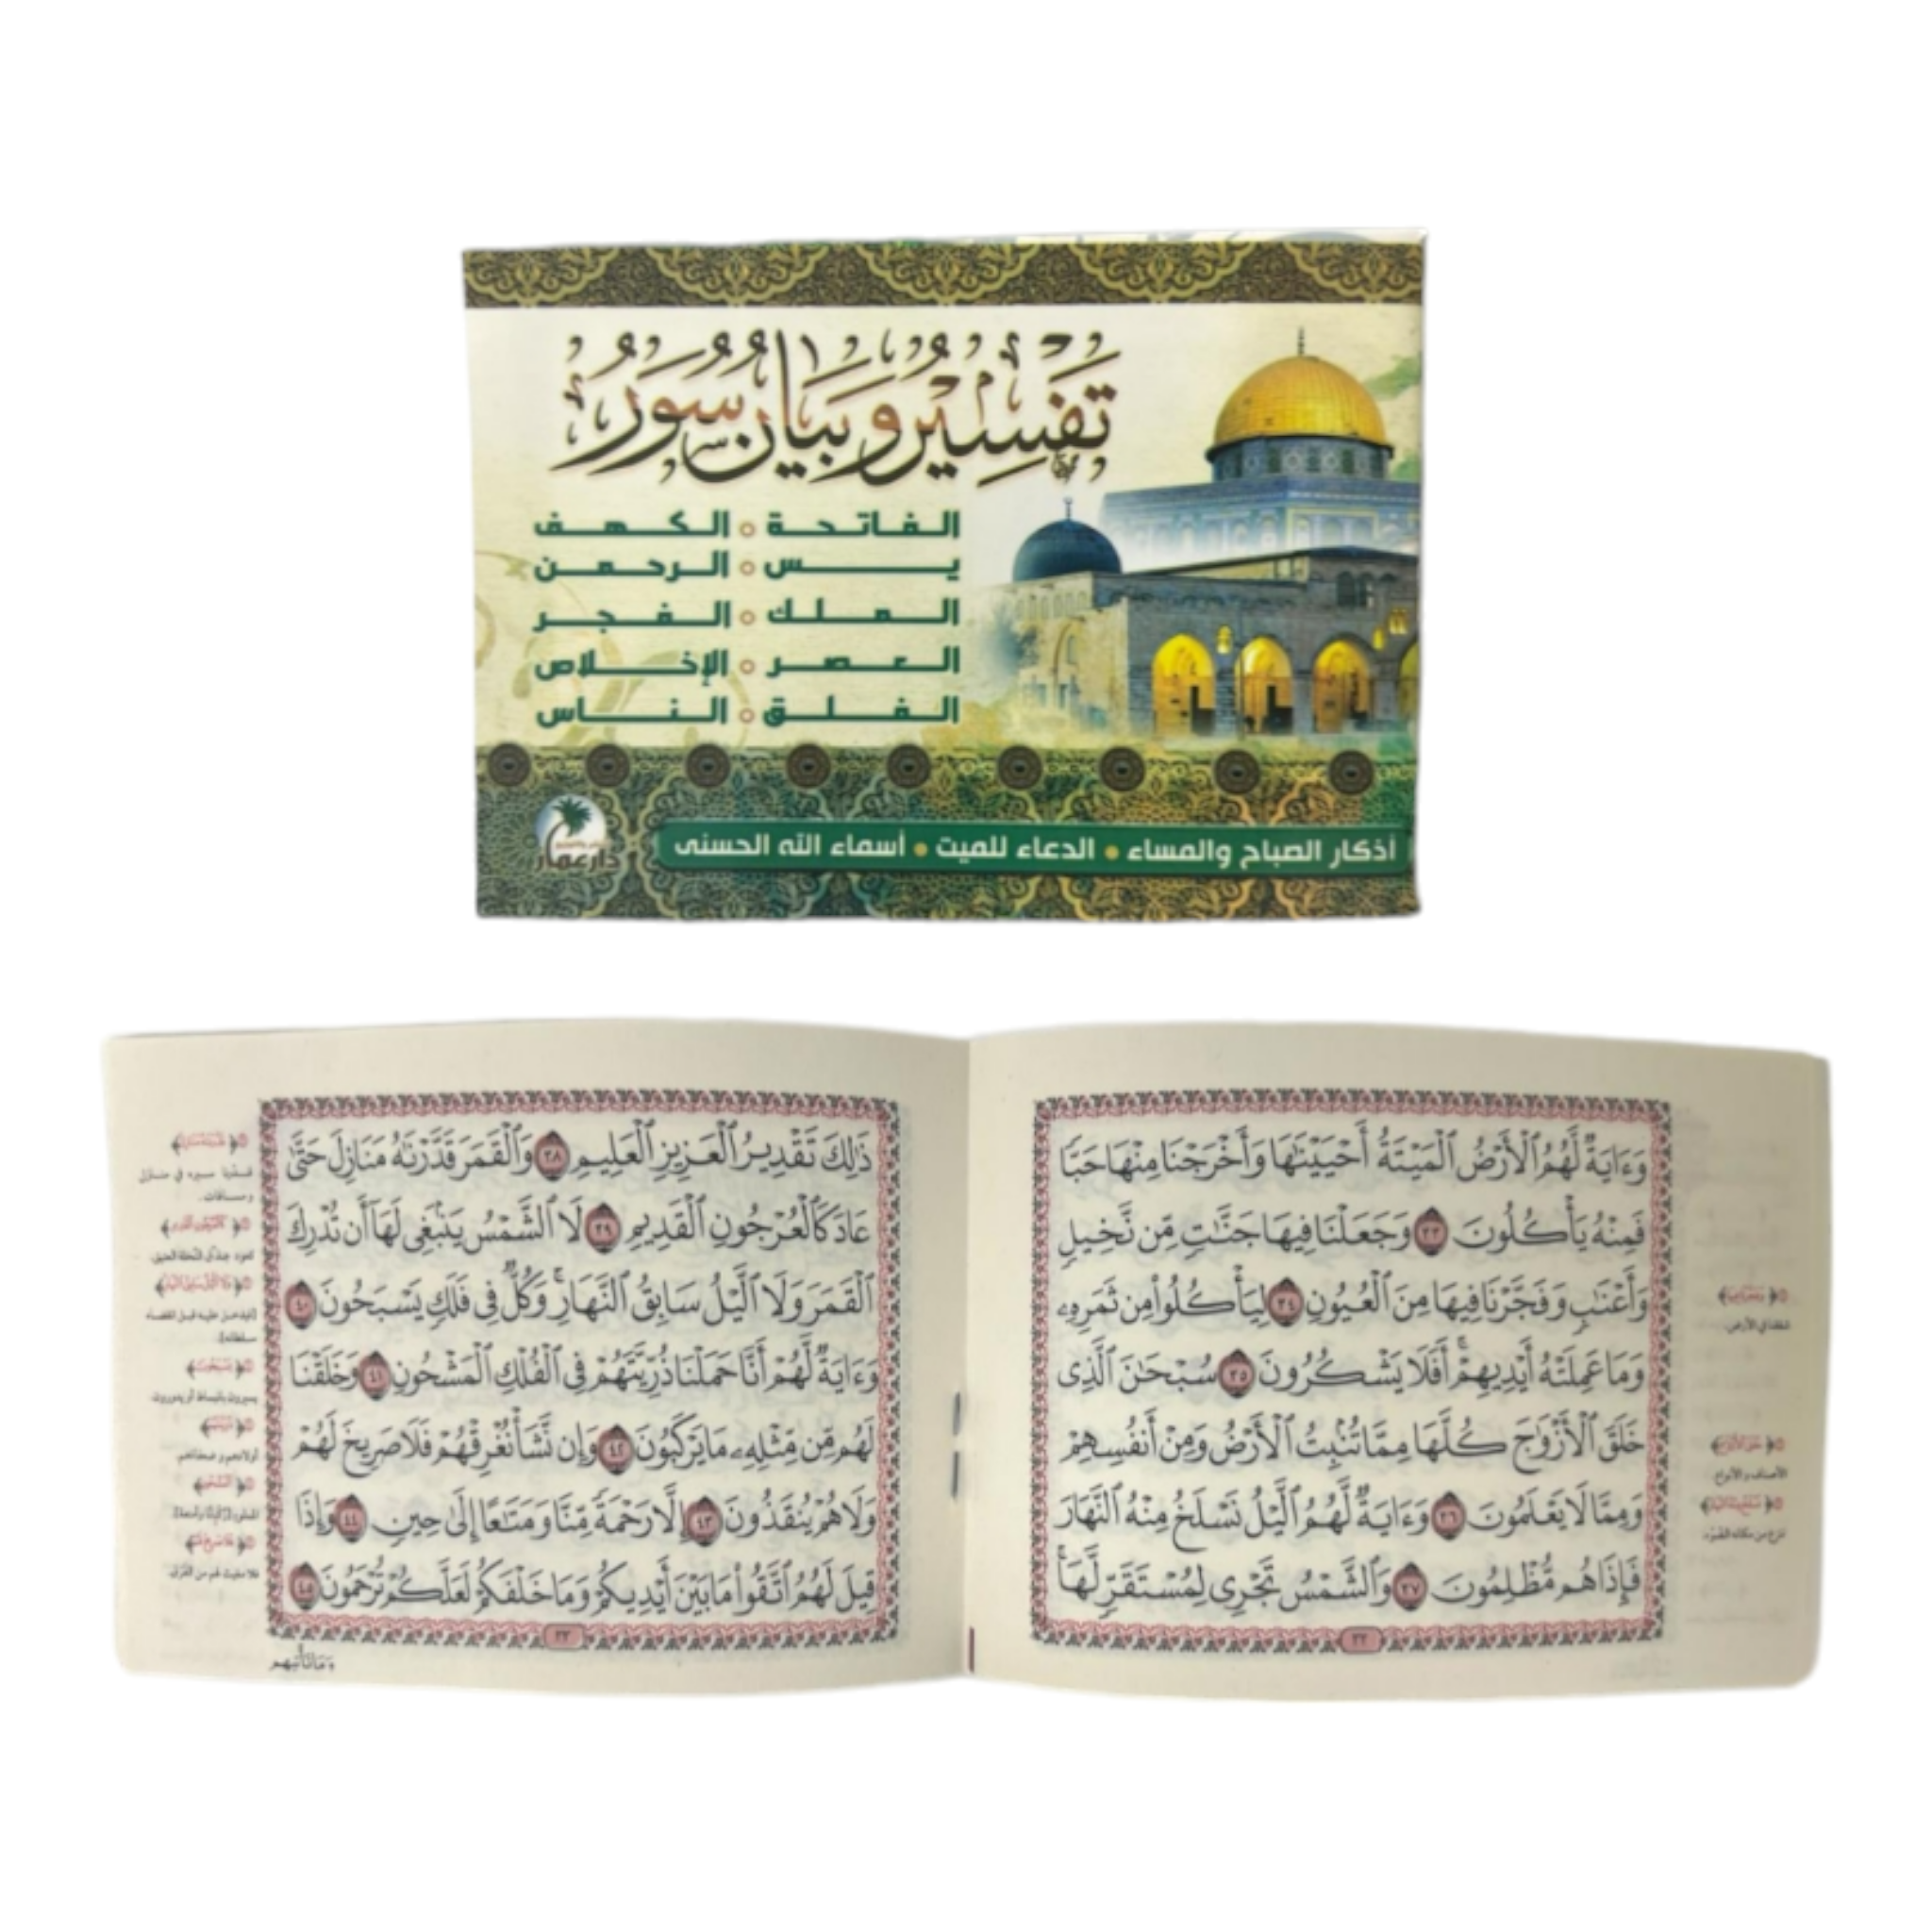 تَفْسِيرُ وَبَيَانُ سُوَرِ
الفاتحة ○ الكهف
يس ○ الرحمن
الملك ○ الفجر
العصر ○ الإخلاص
الفلق ○ الناس
أذكار الصباح والمساء • الدعاء للميت • أسماء الله الحسنى
دار عمار
وَءَايَةٌ لَّهُمُ ٱلْأَرْضُ ٱلْمَيْتَةُ أَحْيَيْنَٰهَا وَأَخْرَجْنَا مِنْهَا حَبًّا
فَمِنْهُ يَأْكُلُونَ ٣٣ وَجَعَلْنَا فِيهَا جَنَّٰتٍ مِّن نَّخِيلٍ
وَأَعْنَٰبٍ وَفَجَّرْنَا فِيهَا مِنَ ٱلْعُيُونِ ٣٤ لِيَأْكُلُوا۟ مِن ثَمَرِهِۦ
وَمَا عَمِلَتْهُ أَيْدِيهِمْ ۖ أَفَلَا يَشْكُرُونَ ٣٥ سُبْحَٰنَ ٱلَّذِى
خَلَقَ ٱلْأَزْوَٰجَ كُلَّهَا مِمَّا تُنۢبِتُ ٱلْأَرْضُ وَمِنْ أَنفُسِهِمْ
وَمِمَّا لَا يَعْلَمُونَ ٣٦ وَءَايَةٌ لَّهُمُ ٱلَّيْلُ نَسْلَخُ مِنْهُ ٱلنَّهَارَ
فَإِذَا هُم مُّظْلِمُونَ ٣٧ وَٱلشَّمْسُ تَجْرِى لِمُسْتَقَرٍّ لَّهَا ۚ
٢٢
شققنا في الأرض.
الأصناف والأنواع
ننزع من مكانه الضوء.
ذَٰلِكَ تَقْدِيرُ ٱلْعَزِيزِ ٱلْعَلِيمِ ٣٨ وَٱلْقَمَرَ قَدَّرْنَٰهُ مَنَازِلَ حَتَّىٰ
عَادَ كَٱلْعُرْجُونِ ٱلْقَدِيمِ ٣٩ لَا ٱلشَّمْسُ يَنۢبَغِى لَهَآ أَن تُدْرِكَ
ٱلْقَمَرَ وَلَا ٱلَّيْلُ سَابِقُ ٱلنَّهَارِ ۚ وَكُلٌّ فِى فَلَكٍ يَسْبَحُونَ ٤٠
وَءَايَةٌ لَّهُمْ أَنَّا حَمَلْنَا ذُرِّيَّتَهُمْ فِى ٱلْفُلْكِ ٱلْمَشْحُونِ ٤١ وَخَلَقْنَا
لَهُم مِّن مِّثْلِهِۦ مَا يَرْكَبُونَ ٤٢ وَإِن نَّشَأْ نُغْرِقْهُمْ فَلَا صَرِيخَ لَهُمْ
وَلَا هُمْ يُنقَذُونَ ٤٣ إِلَّا رَحْمَةً مِّنَّا وَمَتَٰعًا إِلَىٰ حِينٍ ٤٤ وَإِذَا
قِيلَ لَهُمُ ٱتَّقُوا۟ مَا بَيْنَ أَيْدِيكُمْ وَمَا خَلْفَكُمْ لَعَلَّكُمْ تُرْحَمُونَ ٤٥
٢٣
وَمَا تَأْتِيهِم
قدّرنا سيره في منازل
ومسافات.
كعود عذق النخلة العتيق.
يسيرون بانبساط أو يدورون.
أولادهم وضعفاءهم.
فلا مغيث لهم من الغرق.